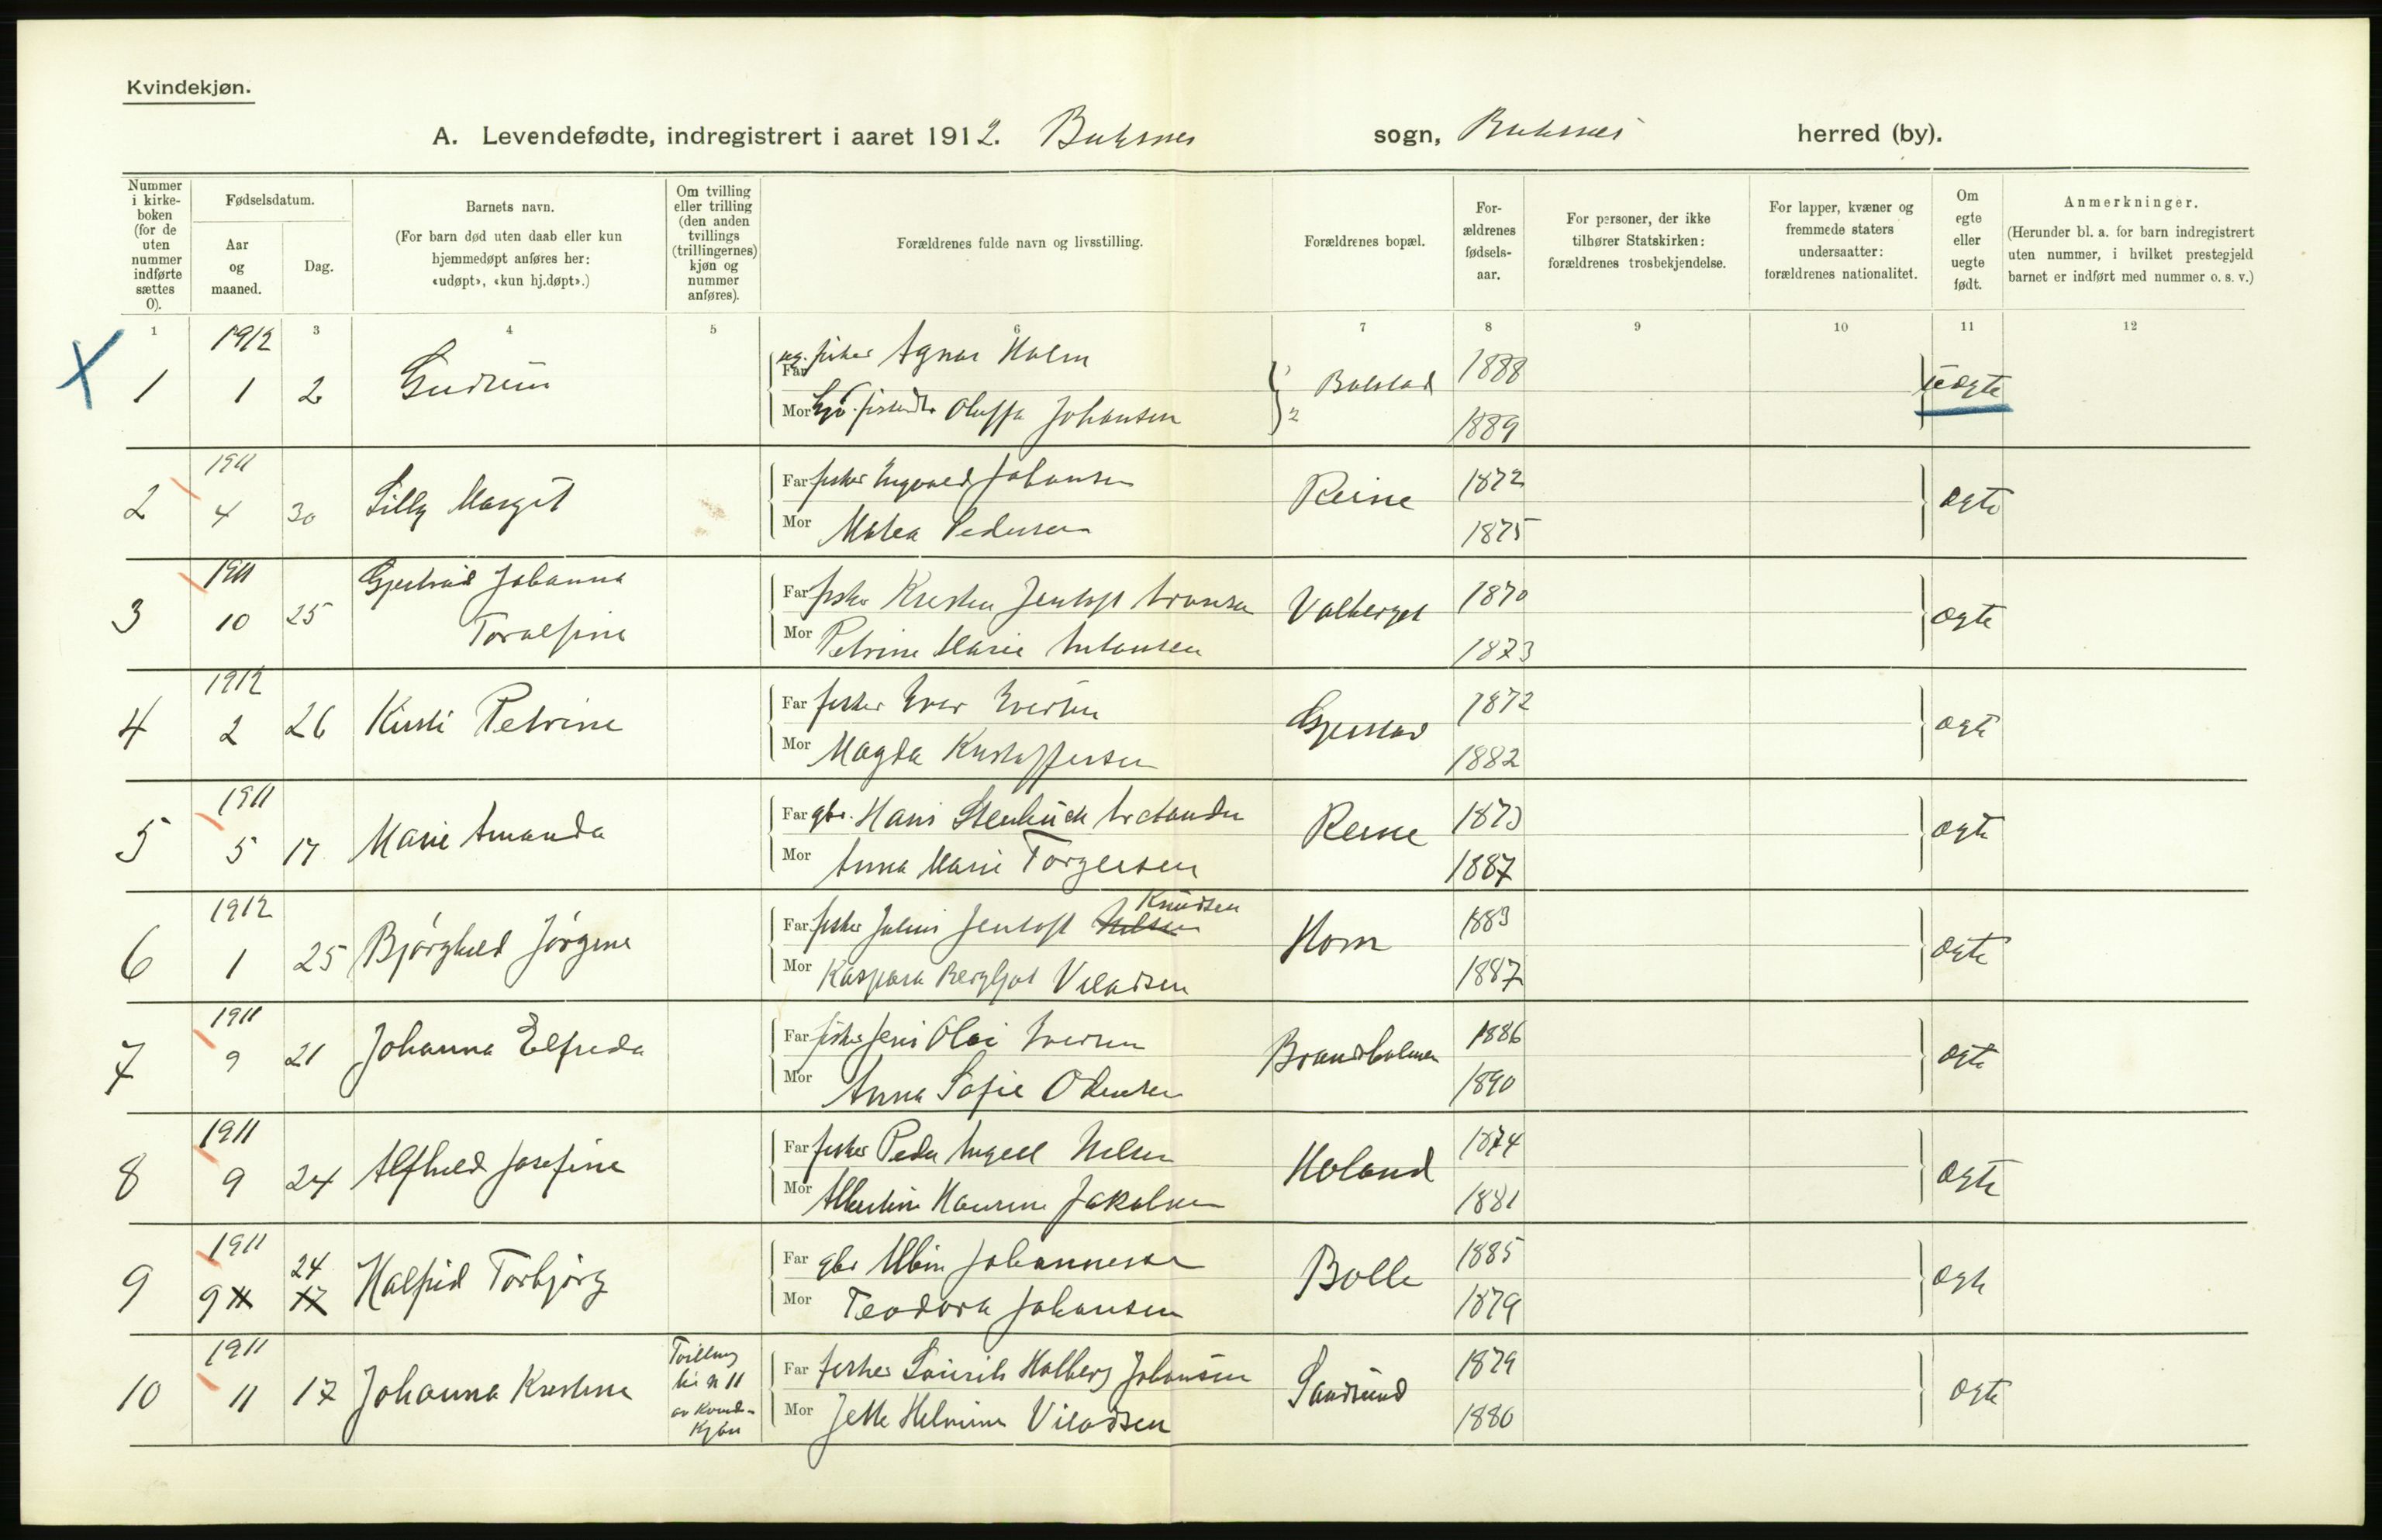 Kvindekjøn.
A. Levendefødte, indregistrert i aaret 1912. Buksnes sogn, Buksnes herred (by).
Nummer i kirke-boken (for de uten nummer indførte sættes 0).
Fødselsdatum.
Aar og maaned.
Dag.
Barnets navn.
(For barn død uten daab eller kun hjemmedøpt anføres her: «udøpt», «kun hj.døpt».)
Om tvilling eller trilling (den anden tvillings (trillingernes) kjøn og nummer anføres).
Forældrenes fulde navn og livsstilling.
Forældrenes bopæl.
For-ældrenes fødsels-aar.
For personer, der ikke tilhører Statskirken: forældrenes trosbekjendelse.
For lapper, kvæner og fremmede staters undersaatter: forældrenes nationalitet.
Om egte eller uegte født.
Anmerkninger.
(Herunder bl. a. for barn indregistrert uten nummer, i hvilket prestegjeld barnet er indført med nummer o. s. v.)
1 3 4 5 6 7 8 9 10 11 12
X 1 1912 1 2 Gudrun
Far ug. fisker Agnar Holm 1888
Mor Oluffa Johansen 1889
Balstad uegte
2 1911 4 30 Lilly Margit
Far fisker Ingvald Johansen 1872
Mor Matea Pedersen 1875
Reine egte
3 1911 10 25 Gjertrud Johanna Toralfine
Far fisker Kristen Jentoft 1870
Mor Petrine Marie Antonsen 1873
Valberget egte
4 1912 2 26 Kirsti Petrine
Far fisker Iver Iversen 1872
Mor Magda Kristoffersen 1882
Gjerstad egte
5 1911 5 17 Marie Amanda
Far gbr. Hans 1873
Mor Anna Marie Torgersen 1887
Reine egte
6 1912 1 25 Bjørghild Jørgine
Far fisker Julius Jentoft Nilsen Knudsen 1883
Mor Kaspara Bergljot Viladsen 1887
Horn egte
7 1911 9 21 Johanna Elfrida
Far fisker Jens Olai Iversen 1886
Mor Anna Sofie Odensen 1890
Brandsholmen egte
8 1911 9 24 Alfhild Josefine
Far fisker Peder Angell Nilsen 1874
Mor Albertine Jakobsen 1881
Holand egte
9 1911 9 11 24 17 Halfrid Torbjørg
Far gbr Albin Johannesen 1885
Mor Teodora Johansen 1879
Bolle egte
10 1911 11 17 Johanna Kristine
Tvilling til N 11 av Kvinde-Kjøn
Far fisker Laurits Holberg Johansen 1879
Mor Jette Helmine Viladsen 1880
Sandsund egte